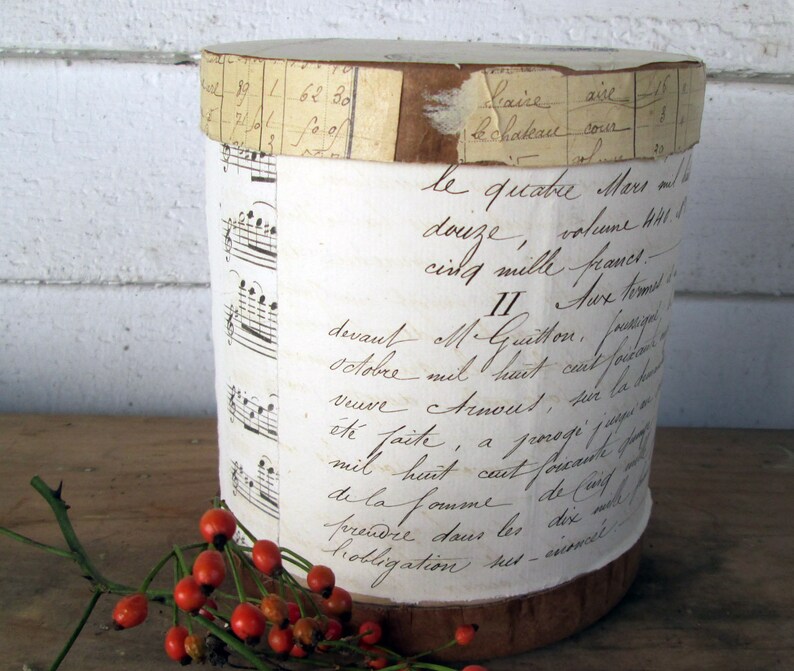 89 1 62 30
L'aire aire 16
le chateau cour 3
20
le quatre Mars mil
douze, volume 440
cinq mille francs.
II Aux termes
devant Me Guitton,
octobre mil huit cent soixante
veuve Arnous, sur la
été faite, a prorogé jusqu'au
mil huit cent soixante
de la somme de Cinq
prendre dans les dix mille
l'obligation sus-énoncée.